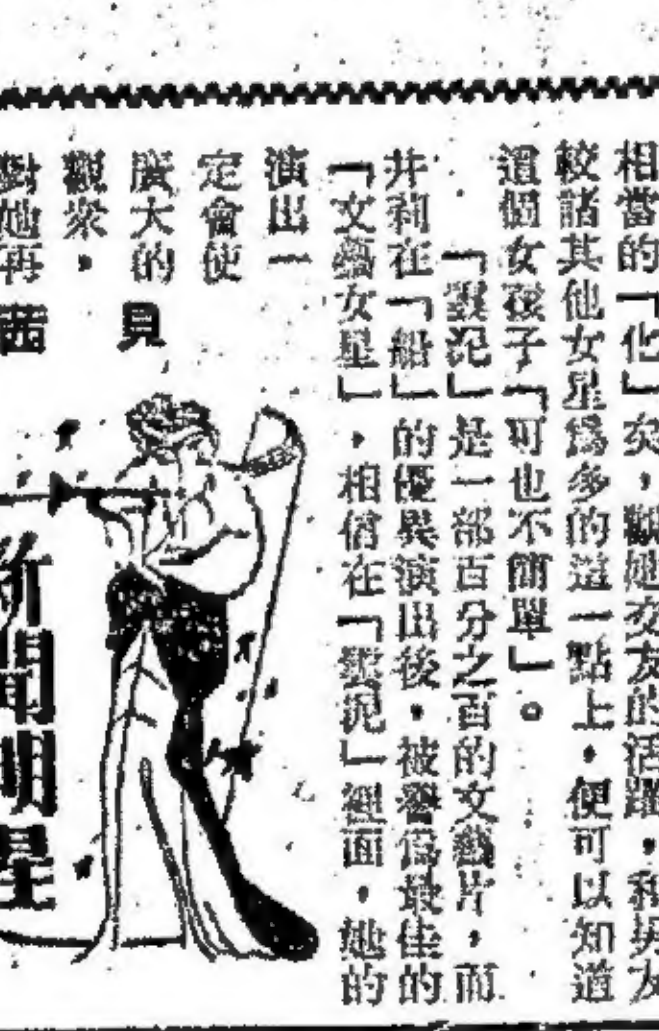 相當的「化」矣,觀她交友的活躍,和男友
較諸其他女星爲多的這一點上,便可以知道
這個女孩子「可也不簡單」。
「雲泥」是一部百分之百的文藝片,而
井莉在「船」的優異演出後,被譽爲最佳的
「文藝女星」,相信在「雲泥」裡面,她的
演出一
定會使
廣大的
觀衆,
對她再
見
茜
新聞明星